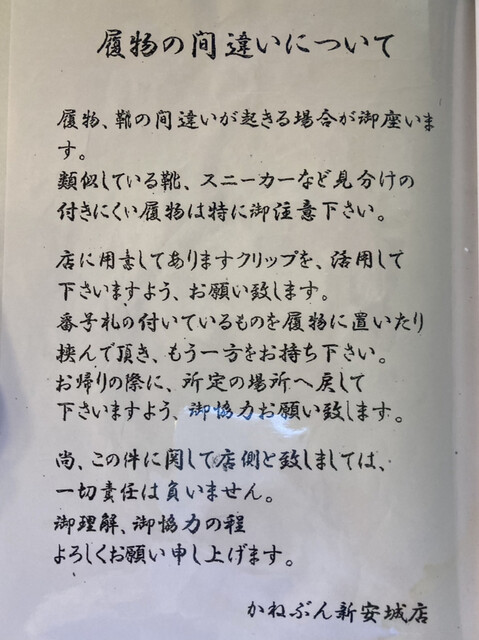 履物の間違いについて
履物、靴の間違いが起きる場合が御座いま
す。
類似している靴、スニーカーなど見分けの
付きにくい履物は特に御注意下さい。
店に用意してありますクリップを、活用して
下さいますよう、お願い致します。
番号札の付いているものを履物に置いたり
挟んで頂き、もう一方をお持ち下さい。
お帰りの際に、所定の場所へ戻して
下さいますよう、御協力お願い致します。
尚、この件に関して店側と致しましては、
一切責任は負いません。
御理解、御協力の程
よろしくお願い申し上げます。
かねぶん新安城店